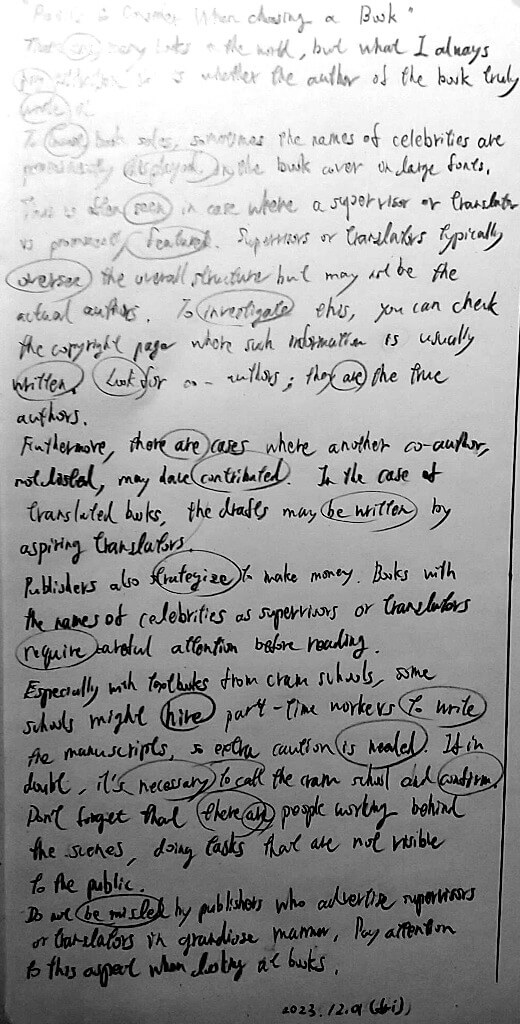 When choosing a Book"
There are many books in the world, but what I always
pay attention to is whether the author of the book truly
wrote it.
To boost book sales, sometimes the names of celebrities are
prominently displayed on the book cover in large fonts.
This is often seen in case where a supervisor or translator
is prominently featured. Supervisors or translators typically
oversee the overall structure but may not be the
actual authors. To investigate this, you can check
the copyright page where such information is usually
written. Look for co-authors; they are the true
authors.
Furthermore, there are cases where another co-author,
not listed, may have contributed. In the case of
translated books, the drafts may be written by
aspiring translators.
Publishers also strategize to make money. Books with
the names of celebrities as supervisors or translators
require careful attention before reading.
Especially with textbooks from cram schools, some
schools might hire part-time workers to write
the manuscripts, so extra caution is needed. If in
doubt, it's necessary to call the cram school and confirm.
Don't forget that there are people working behind
the scenes, doing tasks that are not visible
to the public.
Do not be misled by publishers who advertise supervisors
or translators in grandiose manner. Pay attention
to this aspect when looking at books.
2023.12.9